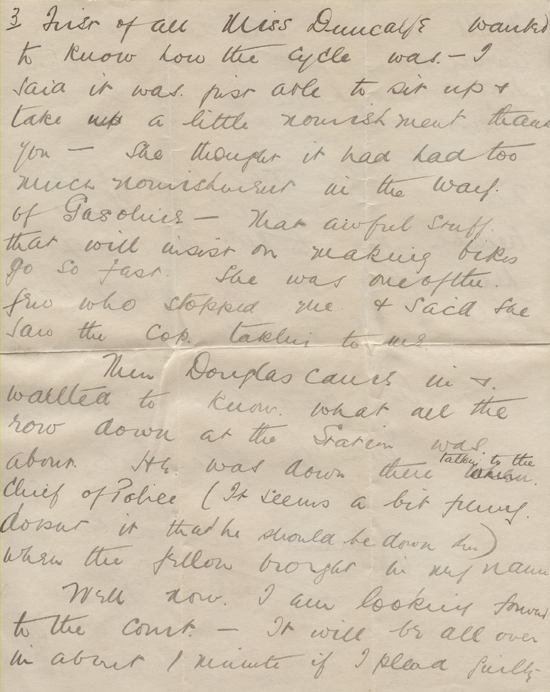 3 First of all Miss Duncalfe wanted
to know how the cycle was. - I
said it was. just able to sit up &
take up a little nourishment thank
you — She thought it had had too
much nourishment in the way.
of Gasoline — That awful stuff.
that will insist on making bikes
go so fast. She was one of the.
few who stopped me & said she
saw the cop. talkin to me
Then Douglas came in &.
wanted to know. what all the
row down at the Station was.
about. He was down there talkin to the
Chief of Police (It seems a bit funny.
doesnt it that he should be down there)
when the fellow brought in my name
Well now. I am looking forward
to the court. — It will be all over
in about 1 minute if I plead guilty